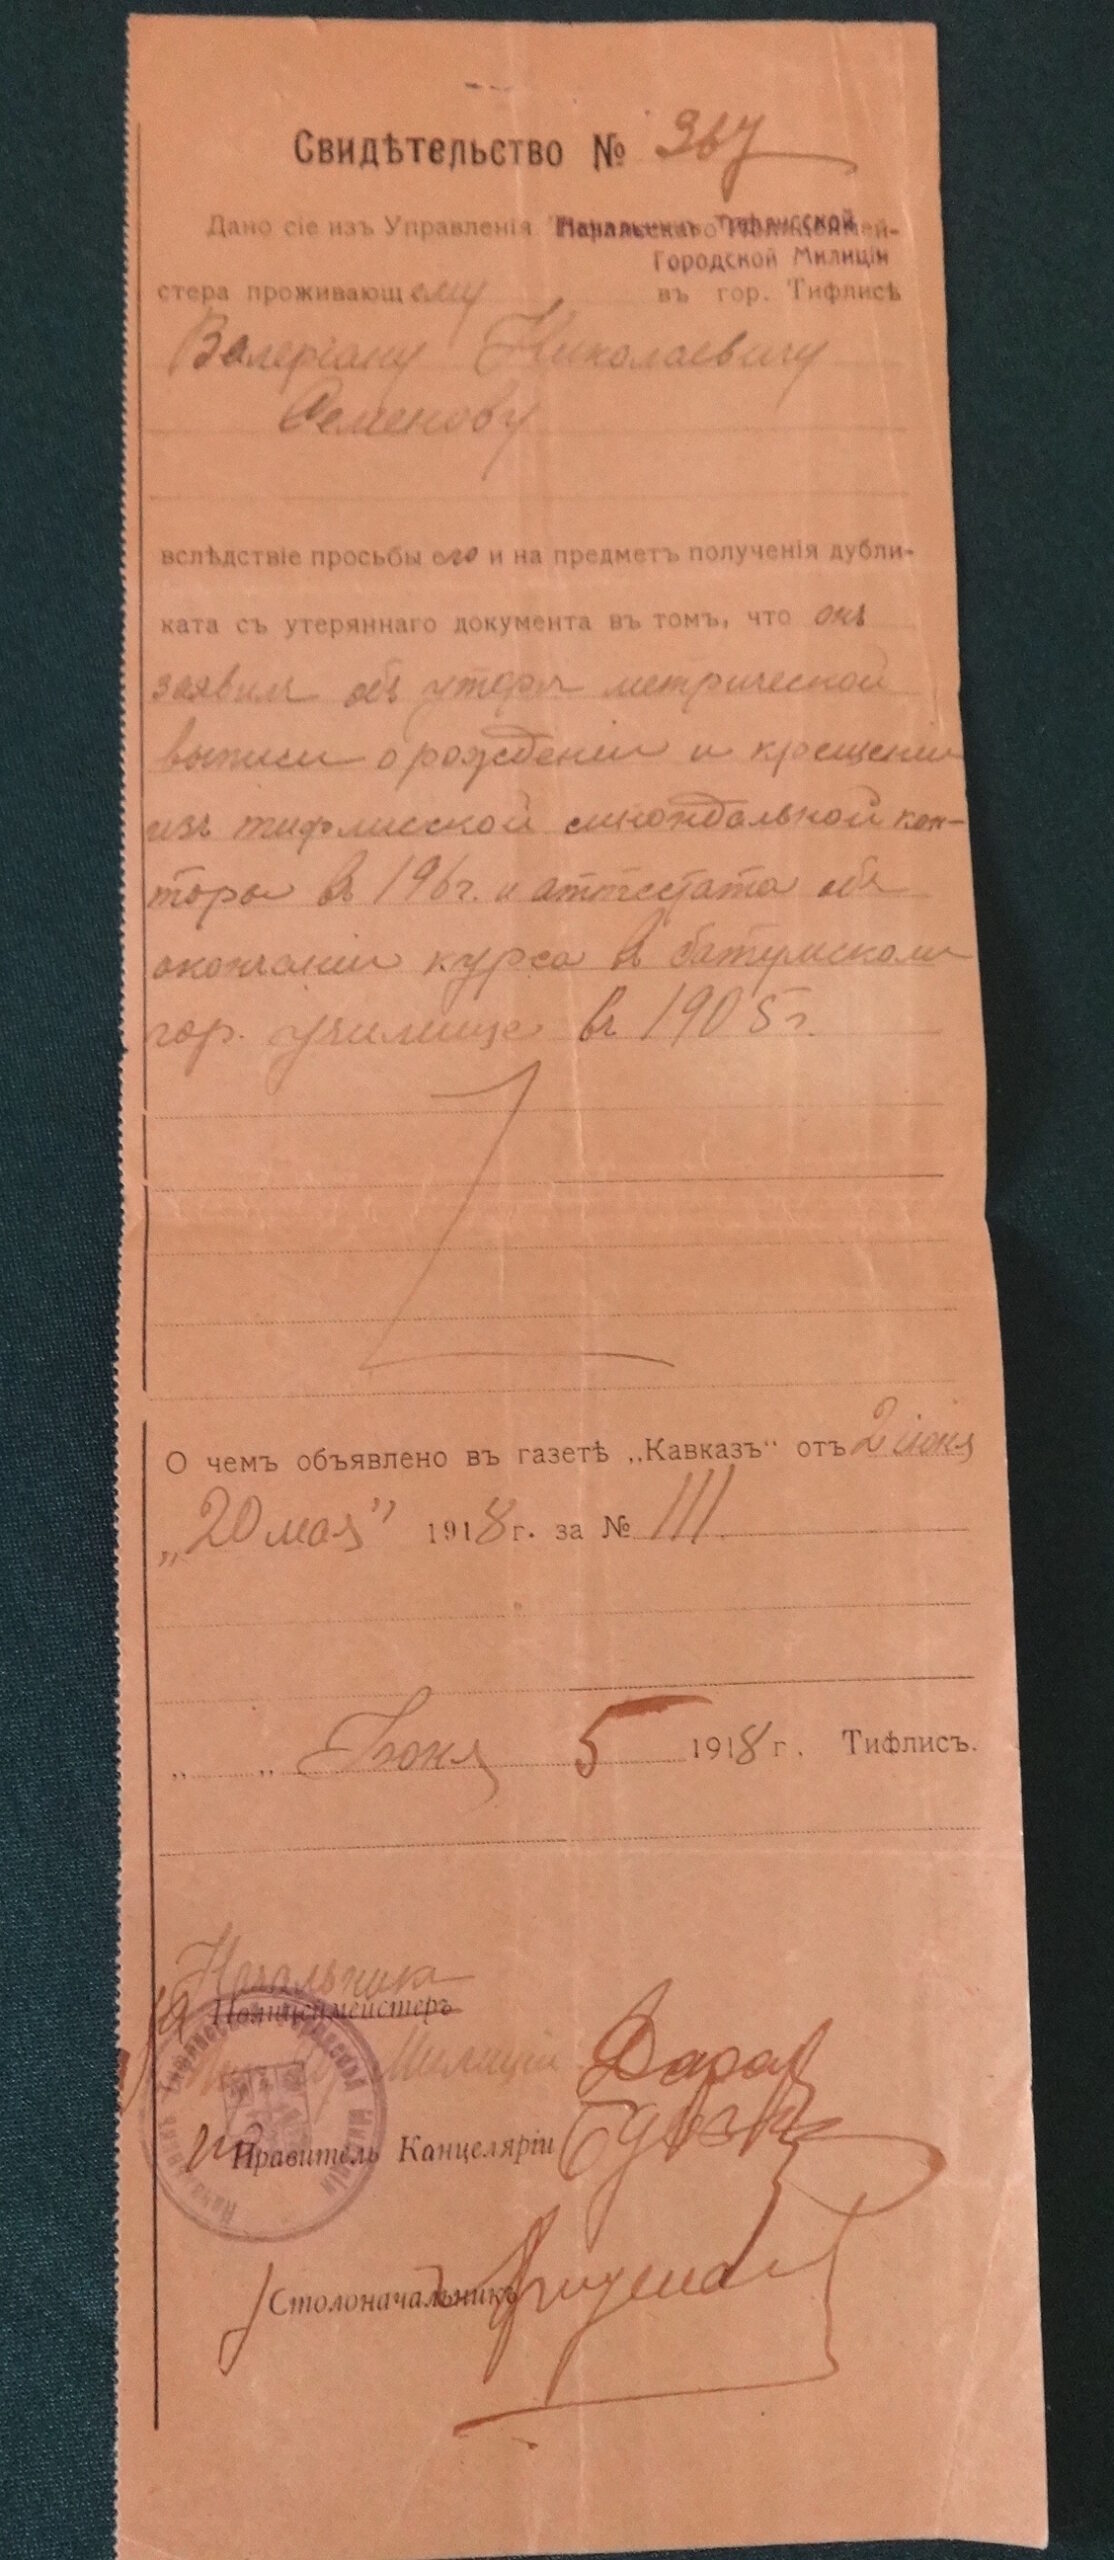 Свидѣтельство № 367
Дано сіе изъ Управленія Начальника Тифлисской
Городской Милиціи
стера проживающему въ гор. Тифлисѣ
Валеріану Николаевичу
Семенову
вслѣдствіе просьбы его и на предметъ полученія дубли-
ката съ утеряннаго документа въ томъ, что онъ
заявилъ объ утерѣ метрической
выписи о рожденіи и крещеніи
изъ тифлисской синондальной кон-
торы въ 196г. и аттестата объ
окончаніи курса въ батумскомъ
гор. училище въ 1905 г.
О чемъ объявлено въ газетѣ „Кавказъ“ отъ 2 іюня
„20 мая” 1918 г. за № 111
„ „ Іюня 5 1918 г. Тифлисъ.
Начальника
Полиціймейстеръ
Милиціи
Правитель Канцеляріи
Столоначальникъ